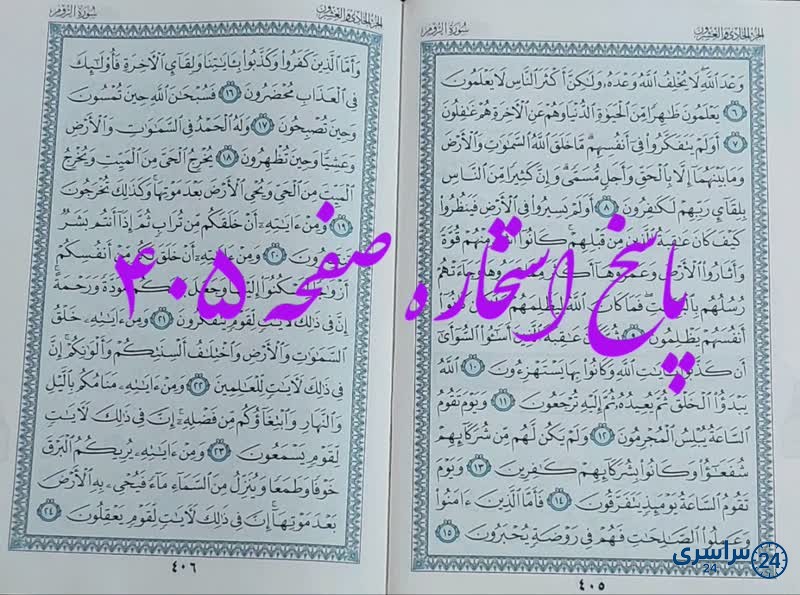 الجزء الحادي والعشرون
سورة الروم
وَعْدَ اللَّهِ لَا يُخْلِفُ اللَّهُ وَعْدَهُ وَلَكِنَّ أَكْثَرَ النَّاسِ لَا يَعْلَمُونَ
٦ يَعْلَمُونَ ظَاهِرًا مِنَ الْحَيَاةِ الدُّنْيَا وَهُمْ عَنِ الْآخِرَةِ هُمْ غَافِلُونَ
٧ أَوَلَمْ يَتَفَكَّرُوا فِي أَنْفُسِهِمْ مَا خَلَقَ اللَّهُ السَّمَاوَاتِ وَالْأَرْضَ
وَمَا بَيْنَهُمَا إِلَّا بِالْحَقِّ وَأَجَلٍ مُسَمًّى وَإِنَّ كَثِيرًا مِنَ النَّاسِ
بِلِقَاءِ رَبِّهِمْ لَكَافِرُونَ ٨ أَوَلَمْ يَسِيرُوا فِي الْأَرْضِ فَيَنْظُرُوا
كَيْفَ كَانَ عَاقِبَةُ الَّذِينَ مِنْ قَبْلِهِمْ كَانُوا أَشَدَّ مِنْهُمْ قُوَّةً
وَأَثَارُوا الْأَرْضَ وَعَمَرُوهَا أَكْثَرَ مِمَّا عَمَرُوهَا وَجَاءَتْهُمْ
رُسُلُهُمْ بِالْبَيِّنَاتِ فَمَا كَانَ اللَّهُ لِيَظْلِمَهُمْ وَلَكِنْ كَانُوا
أَنْفُسَهُمْ يَظْلِمُونَ ثُمَّ كَانَ عَاقِبَةَ الَّذِينَ أَسَاءُوا السُّوأَى
أَنْ كَذَّبُوا بِآيَاتِ اللَّهِ وَكَانُوا بِهَا يَسْتَهْزِئُونَ ١٠ اللَّهُ
يَبْدَأُ الْخَلْقَ ثُمَّ يُعِيدُهُ ثُمَّ إِلَيْهِ تُرْجَعُونَ ١١ وَيَوْمَ تَقُومُ
السَّاعَةُ يُبْلِسُ الْمُجْرِمُونَ ١٢ وَلَمْ يَكُنْ لَهُمْ مِنْ شُرَكَائِهِمْ
شُفَعَاءُ وَكَانُوا بِشُرَكَائِهِمْ كَافِرِينَ ١٣ وَيَوْمَ
تَقُومُ السَّاعَةُ يَوْمَئِذٍ يَتَفَرَّقُونَ ١٤ فَأَمَّا الَّذِينَ آمَنُوا
وَعَمِلُوا الصَّالِحَاتِ فَهُمْ فِي رَوْضَةٍ يُحْبَرُونَ ١٥
٤٠٥
الجزء الحادي والعشرون
سورة الروم
وَأَمَّا الَّذِينَ كَفَرُوا وَكَذَّبُوا بِآيَاتِنَا وَلِقَاءِ الْآخِرَةِ فَأُولَئِكَ
فِي الْعَذَابِ مُحْضَرُونَ ١٦ فَسُبْحَانَ اللَّهِ حِينَ تُمْسُونَ
وَحِينَ تُصْبِحُونَ ١٧ وَلَهُ الْحَمْدُ فِي السَّمَاوَاتِ وَالْأَرْضِ
وَعَشِيًّا وَحِينَ تُظْهِرُونَ ١٨ يُخْرِجُ الْحَيَّ مِنَ الْمَيِّتِ وَيُخْرِجُ
الْمَيِّتَ مِنَ الْحَيِّ وَيُحْيِي الْأَرْضَ بَعْدَ مَوْتِهَا وَكَذَلِكَ تُخْرَجُونَ
١٩ وَمِنْ آيَاتِهِ أَنْ خَلَقَكُمْ مِنْ تُرَابٍ ثُمَّ إِذَا أَنْتُمْ بَشَرٌ
تَنْتَشِرُونَ ٢٠ وَمِنْ آيَاتِهِ أَنْ خَلَقَ لَكُمْ مِنْ أَنْفُسِكُمْ
أَزْوَاجًا لِتَسْكُنُوا إِلَيْهَا وَجَعَلَ بَيْنَكُمْ مَوَدَّةً وَرَحْمَةً
إِنَّ فِي ذَلِكَ لَآيَاتٍ لِقَوْمٍ يَتَفَكَّرُونَ ٢١ وَمِنْ آيَاتِهِ خَلْقُ
السَّمَاوَاتِ وَالْأَرْضِ وَاخْتِلَافُ أَلْسِنَتِكُمْ وَأَلْوَانِكُمْ إِنَّ
فِي ذَلِكَ لَآيَاتٍ لِلْعَالِمِينَ ٢٢ وَمِنْ آيَاتِهِ مَنَامُكُمْ بِاللَّيْلِ
وَالنَّهَارِ وَابْتِغَاؤُكُمْ مِنْ فَضْلِهِ إِنَّ فِي ذَلِكَ لَآيَاتٍ
لِقَوْمٍ يَسْمَعُونَ ٢٣ وَمِنْ آيَاتِهِ يُرِيكُمُ الْبَرْقَ
خَوْفًا وَطَمَعًا وَيُنَزِّلُ مِنَ السَّمَاءِ مَاءً فَيُحْيِي بِهِ الْأَرْضَ
بَعْدَ مَوْتِهَا إِنَّ فِي ذَلِكَ لَآيَاتٍ لِقَوْمٍ يَعْقِلُونَ ٢٤
٤٠٦
پاسخ استخاره صفحه ۴۰۵
سراسری 24
24